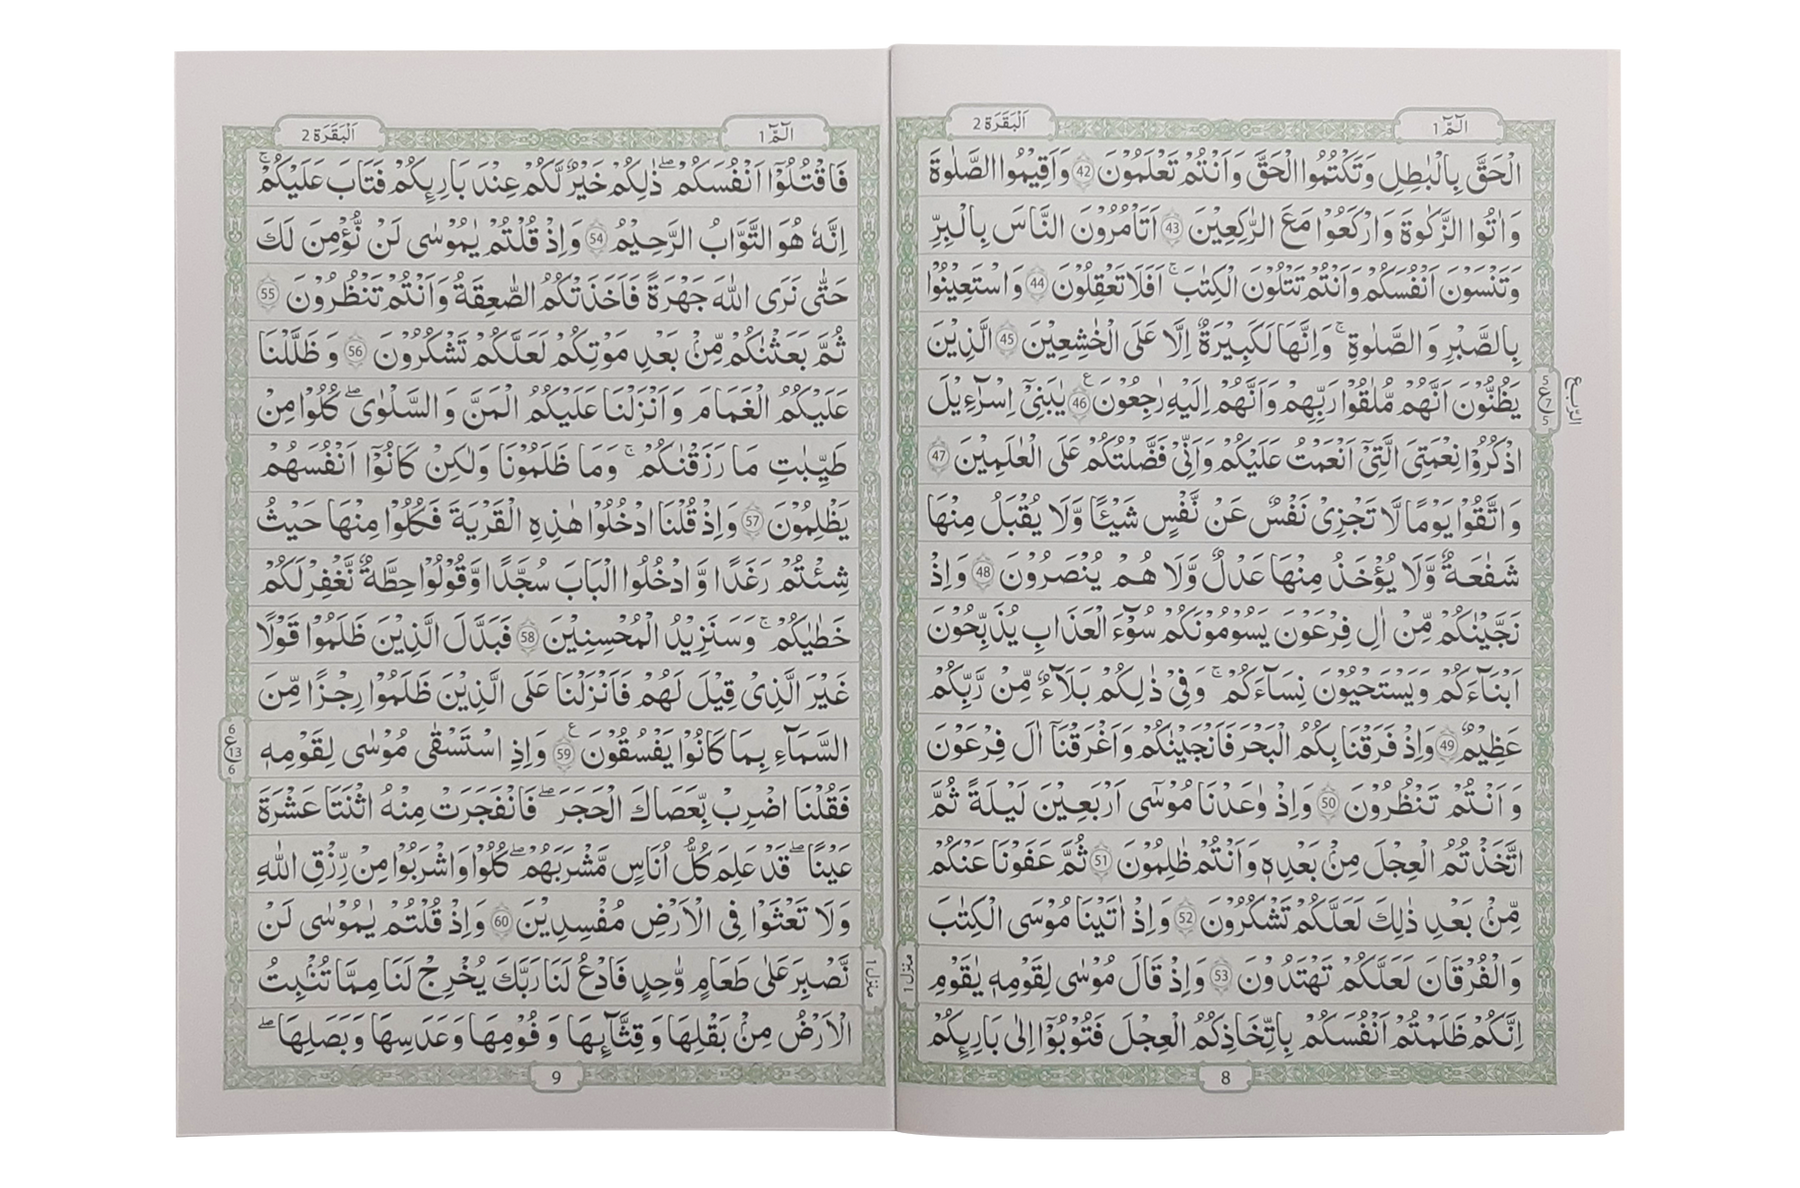 الٓمّٓ 1
اَلْبَقَرَة 2
الْحَقَّ بِالْبٰطِلِ وَتَكْتُمُوا الْحَقَّ وَاَنْتُمْ تَعْلَمُوْنَ 42 وَاَقِيْمُوا الصَّلٰوةَ
وَاٰتُوا الزَّكٰوةَ وَارْكَعُوْا مَعَ الرّٰكِعِيْنَ 43 اَتَاْمُرُوْنَ النَّاسَ بِالْبِرِّ
وَتَنْسَوْنَ اَنْفُسَكُمْ وَاَنْتُمْ تَتْلُوْنَ الْكِتٰبَ ۚ اَفَلَا تَعْقِلُوْنَ 44 وَاسْتَعِيْنُوْا
بِالصَّبْرِ وَالصَّلٰوةِ ۚ وَاِنَّهَا لَكَبِيْرَةٌ اِلَّا عَلَى الْخٰشِعِيْنَ 45 الَّذِيْنَ
يَظُنُّوْنَ اَنَّهُمْ مُّلٰقُوْا رَبِّهِمْ وَاَنَّهُمْ اِلَيْهِ رٰجِعُوْنَ ع 46 يٰبَنِيْٓ اِسْرَآءِيْلَ
5 ع 7 5
الرّبع
اذْكُرُوْا نِعْمَتِيَ الَّتِيْٓ اَنْعَمْتُ عَلَيْكُمْ وَاَنِّيْ فَضَّلْتُكُمْ عَلَى الْعٰلَمِيْنَ 47
وَاتَّقُوْا يَوْمًا لَّا تَجْزِيْ نَفْسٌ عَنْ نَّفْسٍ شَيْـًٔا وَّلَا يُقْبَلُ مِنْهَا
شَفٰعَةٌ وَّلَا يُؤْخَذُ مِنْهَا عَدْلٌ وَّلَا هُمْ يُنْصَرُوْنَ 48 وَاِذْ
نَجَّيْنٰكُمْ مِّنْ اٰلِ فِرْعَوْنَ يَسُوْمُوْنَكُمْ سُوْٓءَ الْعَذَابِ يُذَبِّحُوْنَ
اَبْنَآءَكُمْ وَيَسْتَحْيُوْنَ نِسَآءَكُمْ ۚ وَفِيْ ذٰلِكُمْ بَلَآءٌ مِّنْ رَّبِّكُمْ
عَظِيْمٌ 49 وَاِذْ فَرَقْنَا بِكُمُ الْبَحْرَ فَاَنْجَيْنٰكُمْ وَاَغْرَقْنَآ اٰلَ فِرْعَوْنَ
وَاَنْتُمْ تَنْظُرُوْنَ 50 وَاِذْ وٰعَدْنَا مُوْسٰٓى اَرْبَعِيْنَ لَيْلَةً ثُمَّ
اتَّخَذْتُمُ الْعِجْلَ مِنْۢ بَعْدِهٖ وَاَنْتُمْ ظٰلِمُوْنَ 51 ثُمَّ عَفَوْنَا عَنْكُمْ
مِّنْۢ بَعْدِ ذٰلِكَ لَعَلَّكُمْ تَشْكُرُوْنَ 52 وَاِذْ اٰتَيْنَا مُوْسَى الْكِتٰبَ
وَالْفُرْقَانَ لَعَلَّكُمْ تَهْتَدُوْنَ 53 وَاِذْ قَالَ مُوْسٰى لِقَوْمِهٖ يٰقَوْمِ
منزل 1
اِنَّكُمْ ظَلَمْتُمْ اَنْفُسَكُمْ بِاتِّخَاذِكُمُ الْعِجْلَ فَتُوْبُوْٓا اِلٰى بَارِىِٕكُمْ
8
الٓمّٓ 1
اَلْبَقَرَة 2
فَاقْتُلُوْٓا اَنْفُسَكُمْ ۖ ذٰلِكُمْ خَيْرٌ لَّكُمْ عِنْدَ بَارِىِٕكُمْ فَتَابَ عَلَيْكُمْ ۚ
اِنَّهٗ هُوَ التَّوَّابُ الرَّحِيْمُ 54 وَاِذْ قُلْتُمْ يٰمُوْسٰى لَنْ نُّؤْمِنَ لَكَ
حَتّٰى نَرَى اللّٰهَ جَهْرَةً فَاَخَذَتْكُمُ الصّٰعِقَةُ وَاَنْتُمْ تَنْظُرُوْنَ 55
ثُمَّ بَعَثْنٰكُمْ مِّنْۢ بَعْدِ مَوْتِكُمْ لَعَلَّكُمْ تَشْكُرُوْنَ 56 وَظَلَّلْنَا
عَلَيْكُمُ الْغَمَامَ وَاَنْزَلْنَا عَلَيْكُمُ الْمَنَّ وَالسَّلْوٰى ۖ كُلُوْا مِنْ
طَيِّبٰتِ مَا رَزَقْنٰكُمْ ۚ وَمَا ظَلَمُوْنَا وَلٰكِنْ كَانُوْٓا اَنْفُسَهُمْ
يَظْلِمُوْنَ 57 وَاِذْ قُلْنَا ادْخُلُوْا هٰذِهِ الْقَرْيَةَ فَكُلُوْا مِنْهَا حَيْثُ
شِئْتُمْ رَغَدًا وَّادْخُلُوا الْبَابَ سُجَّدًا وَّقُوْلُوْا حِطَّةٌ نَّغْفِرْ لَكُمْ
خَطٰيٰكُمْ ۚ وَسَنَزِيْدُ الْمُحْسِنِيْنَ 58 فَبَدَّلَ الَّذِيْنَ ظَلَمُوْا قَوْلًا
غَيْرَ الَّذِيْ قِيْلَ لَهُمْ فَاَنْزَلْنَا عَلَى الَّذِيْنَ ظَلَمُوْا رِجْزًا مِّنَ
السَّمَآءِ بِمَا كَانُوْا يَفْسُقُوْنَ ع 59 وَاِذِ اسْتَسْقٰى مُوْسٰى لِقَوْمِهٖ
6 ع 13 6
فَقُلْنَا اضْرِبْ بِّعَصَاكَ الْحَجَرَ ۖ فَانْفَجَرَتْ مِنْهُ اثْنَتَا عَشْرَةَ
عَيْنًا ۖ قَدْ عَلِمَ كُلُّ اُنَاسٍ مَّشْرَبَهُمْ ۖ كُلُوْا وَاشْرَبُوْا مِنْ رِّزْقِ اللّٰهِ
وَلَا تَعْثَوْا فِى الْاَرْضِ مُفْسِدِيْنَ 60 وَاِذْ قُلْتُمْ يٰمُوْسٰى لَنْ
نَّصْبِرَ عَلٰى طَعَامٍ وَّاحِدٍ فَادْعُ لَنَا رَبَّكَ يُخْرِجْ لَنَا مِمَّا تُنْۢبِتُ
منزل 1
الْاَرْضُ مِنْۢ بَقْلِهَا وَقِثَّآىِٕهَا وَفُوْمِهَا وَعَدَسِهَا وَبَصَلِهَا ۖ
9